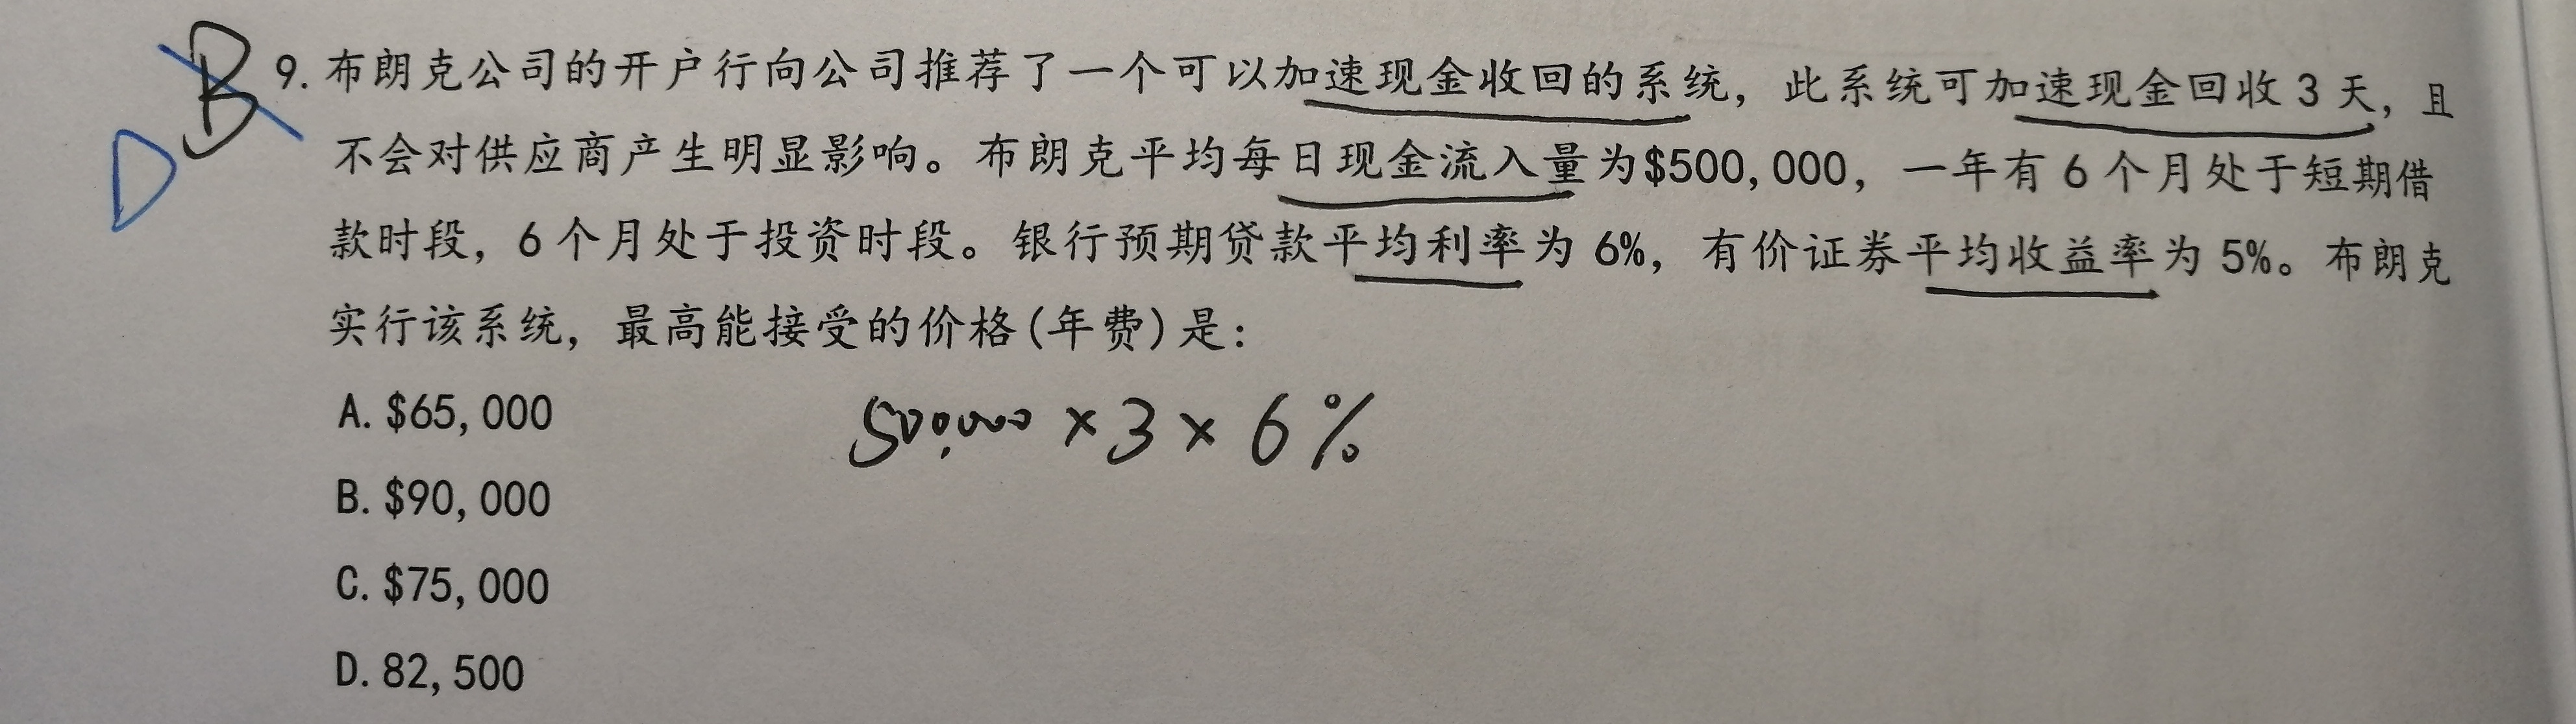 B
D
9. 布朗克公司的开户行向公司推荐了一个可以加速现金收回的系统，此系统可加速现金回收 3 天，且
不会对供应商产生明显影响。布朗克平均每日现金流入量为$500,000，一年有 6 个月处于短期借
款时段，6 个月处于投资时段。银行预期贷款平均利率为 6%，有价证券平均收益率为 5%。布朗克
实行该系统，最高能接受的价格(年费)是：
A. $65,000
500,000 × 3 × 6%
B. $90,000
C. $75,000
D. 82,500